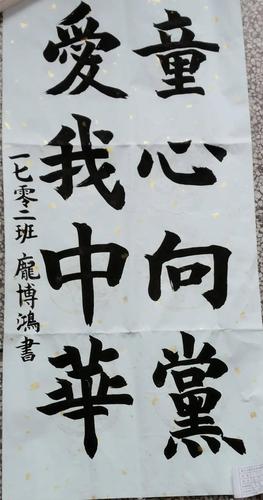 童心向黨
愛我中華
一七零二班 龐博鴻書